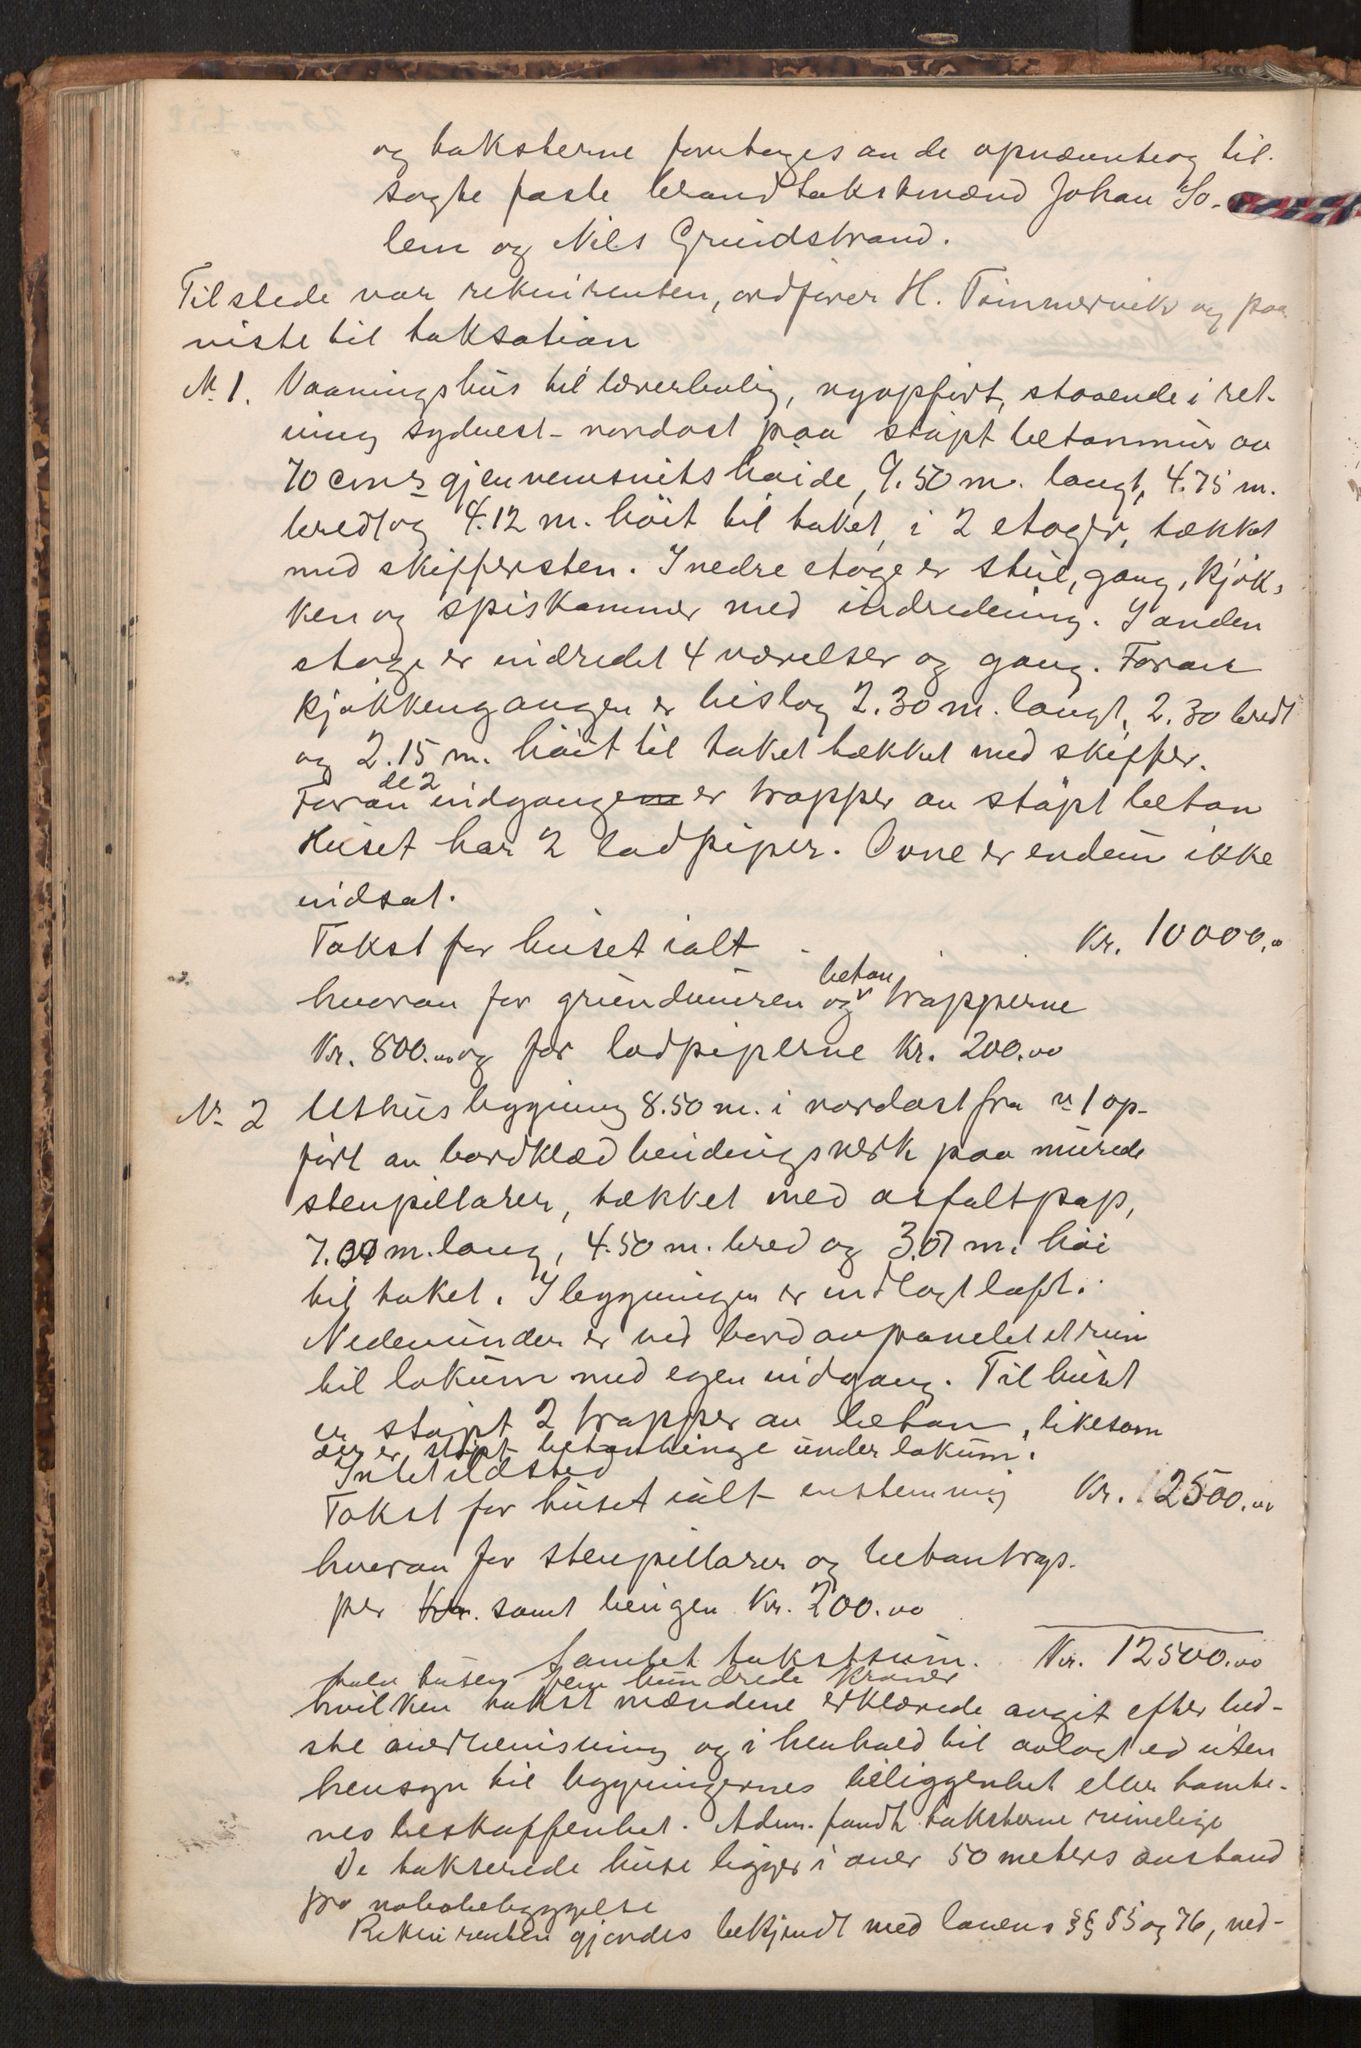 og taksterne foretages av de opnævnte og til-
sagte faste brandtakstmænd Johan So-
lem og Nils Grindstrand.
Tilstede var rekvirenten, ordfører H. Timmervik og paa-
viste til taksation
No 1. Vaaningshus til lærerbolig, nyopført, staaende i ret-
ning sydvest-nordost paa støpt betonmur av
70 cm's gjennemsnitshøide, 9.50 m. langt, 4.75 m.
bredt og 4.12 m. høit til taket, i 2 etager, tækket
med skiffersten. I nedre etage er stue, gang, kjøk-
ken og spiskammer med indredning. I anden
etage er indredet 4 værelser og gang. Foran
kjøkkengangen er bislag 2.30 m. langt, 2.30 bredt
og 2.15 m. høit til taket tækket med skiffer.
Foran de 2 indgange er trapper av støpt beton
Huset har 2 lodpiper. Ovne er endnu ikke
indsat.
Takst for huset ialt Kr. 10000.00
hvorav for grundmuren og beton trapperne
Kr. 800.00 og for lodpiperne Kr. 200.00
No 2 Uthusbygning 8.50 m. i nordost fra no 1 op-
ført av bordklæd bindingsverk paa murede
stenpillarer, tækket med asfaltpap,
7.00 m. lang, 4.50 m. bred og 3.07 m. høi
til taket. I bygningen er indlagt loft.
Nedenunder er ved bord avpanelet et rum
til lokum med egen indgang. Til huset
er støpt 2 trapper av beton, likesom
der er støpt betonbinge under lokum.
Intet ildsted
Takst for huset ialt enstemmig Kr. 2500.00
hvorav for stenpillarer og betontrap-
per samt bingen Kr. 200.00
Samlet takstsum. Kr. 12500.00
tolv tusen fem hundrede kroner
hvilken takst mændene erklærede avgit efter bed-
ste overbevisning og i henhold til avlagt ed uten
hensyn til bygningernes beliggenhet eller tomte-
nes beskaffenhet. Adm. fandt taksterne rimelige
De takserede huse ligger i over 50 meters avstand
fra nabobebyggelse
Rekvirenten gjordes bekjendt med lovens §§ 55 og 76, ned-